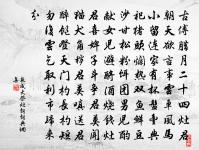 古傳臘月二十四灶君
朝天欲言事雲車風馬
小留連家有杯盤豐典
祀豬頭爛熟雙魚鮮豆
沙甘松粉餌團男兒酌
獻女兒避酹酒燒錢灶
君喜婢子鬥爭君莫聞
猫犬角穢君莫嗔送君
醉飽登天門杓長杓短
勿復雲乞取利市歸來
分
范成大祭灶詞